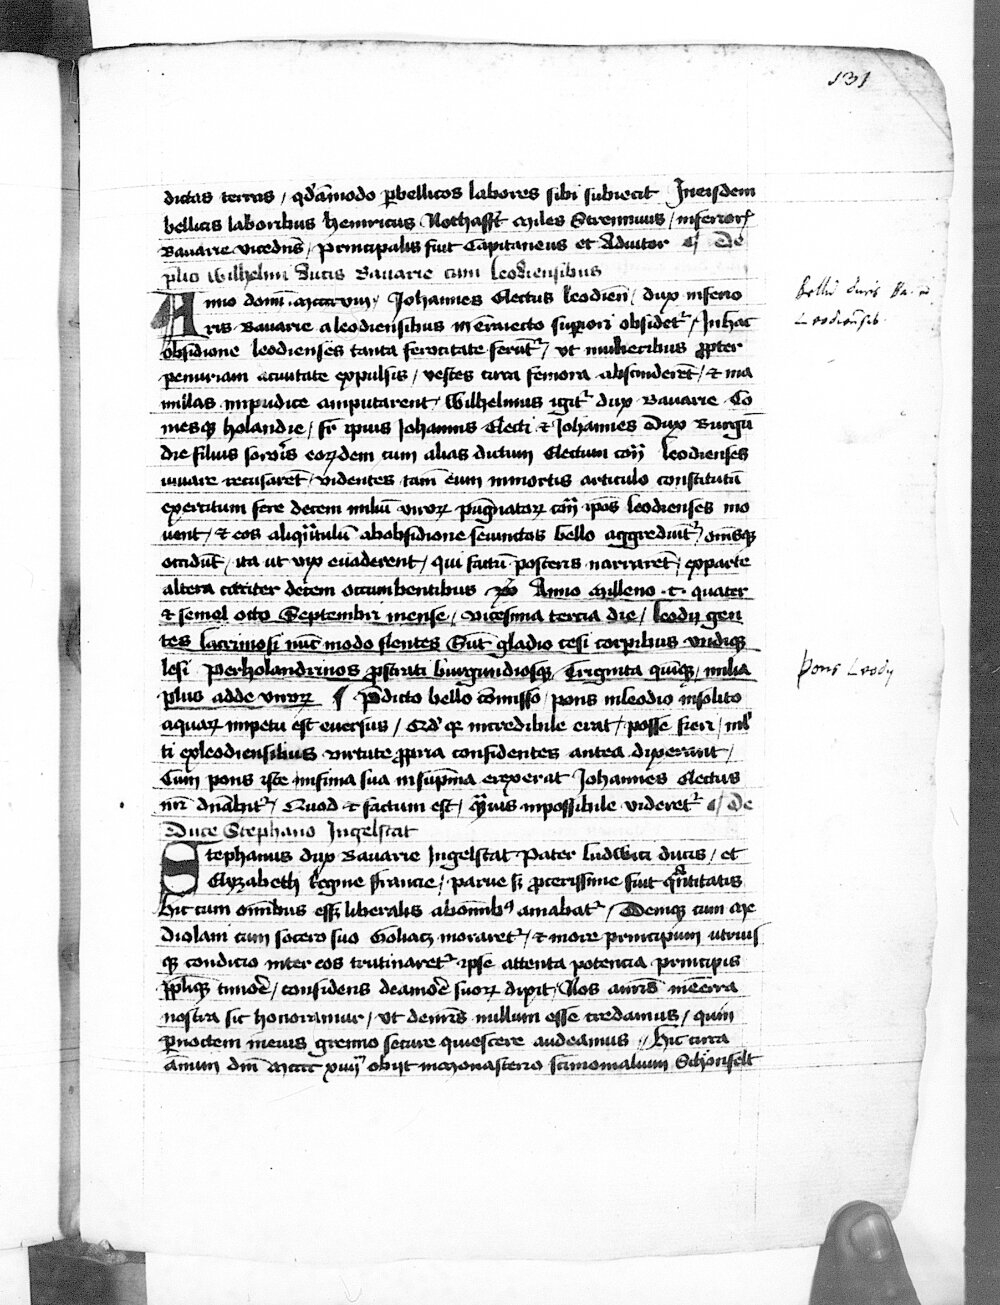 131
dictas terras / qdāmodo p bellicos labores sibi subiecit Jn eisdem
bellicis laboribus henricus Nothafft Miles Strennuus / inferiorꝭ
Bauarie vicedn̄s / principalis fuit Capitaneus et Adiutor ¶ De
plio Wilhelmi ducis Bauarie cum leodiensibus
Anno domī Mccccviij / Johannes Electus leodien̄ / dux inferio
ris Bauarie a leodiensibus in traiecto supiori obsidetʳ / Jn hac
obsidione leodienses tanta ferocitate ferūtʳ / vt mulieribus ꝓpter
penuriam a ciuitate expulsis / vestes circa femora abscinderēt / & ma
millas impudice amputarent / Wilhelmus igitʳ dux Bauarie Co
mesqꝫ holandie / fr̄ ipius Johannis Electi & Johannes Dux Burgū
die filius soroīs eoꝝdem cum alias dictum Electum cont̄ leodienses
iuuare recusarēt / videntes tam̄ eum in mortis articulo constitutū
exercitum fere decem miliū viroꝝ pugnatoꝝ cont̄ ip̄os leodienses mo
uent / & eos aliqn̄tulū ab obsidione seiunctos bello aggrediūtʳ / om̄sqꝫ
occidūt / ita ut vix euaderent / qui factū posteris narrarēt / ex parte
altera circiter decem occumbentibus Anno Milleno c quater
& semel octo Septembri mense / vicesima tercia die / leodij gen
tes lacrimosi nūc modo flentes Sūt gladio cesi corpibus vndiqꝫ
lesi Per holandrinos ꝓstrati burgundiosqꝫ Triginta quiqꝫ milia
plus adde viroꝝ ¶ Pdicto bello cōmisso / pons in leodio insolito
aquaꝝ impetu est euersus / Qd̄ qꝫ incredibile erat / posse fieri / ml̄
ti ex leodiensibus virtute ꝓpria confidentes antea dixerant /
Cum pons iste in fima sua in sup̄ma erexerat Johannes Electus
nr̄ dn̄abitʳ / Quod & factum est / qm̄uis inpossibile videretʳ ¶ De
Duce Stephano Jngelstat
Stephanus dux Bauarie Jngelstat Pater ludwici ducis / et
Elyzabeth Regine francie / parue sꝫ ꝓcerissime fuit qn̄titatis
Hic cum om̄ibus eēt liberalis ab om̄ibꝰ amabatʳ / Deniqꝫ cum Me
diolani cum socero suo Goliacz moraretʳ / & more principum vtrius
qꝫ condicio inter eos trutinaretʳ ipse attenta potencia principis
ꝓpliqꝫ timoē / confidens de amoē suoꝝ dixit / Nos aurīs in terra
nostra sic honoramur / vt de nrīs nullum esse credamus / quin
p noctem in eius gremio secure quiescere audeamus // Hic circa
annum dnī Mcccc xiiij obijt in Monasterio sctimonialium Schonfelt
Bellū Ducis Ba
Leodiēsib
Pons Leodij